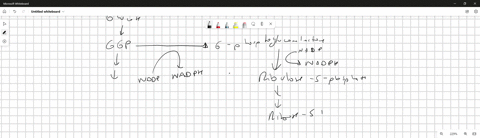 Microsoft Whiteboard
Untitled whiteboard
GGP
6-phosphogluconolactone
NADP
NADPH
NADP
NADPH
Ribulose-5-phosphate
Ribose-5